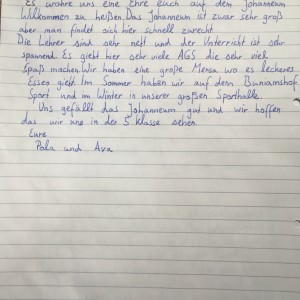 Es währe uns eine Ehre euch auf dem Johanneum
Willkommen zu heißen. Das Johanneum ist zwar sehr groß
aber man findet sich hier schnell zurecht.
Die Lehrer sind sehr nett und der Unterricht ist sehr
spannend. Es giebt hier sehr viele AGS die sehr viel
Spaß machen. Wir haben eine große Mensa wo es leckeres
Essen giebt. Im Sommer haben wir auf dem
Sport und im Winter in unserer großen Sporthalle.
Uns gefällt das Johanneum gut und wir hoffen
das wir uns in der 5 Klasse sehen.
Eure
und Ava